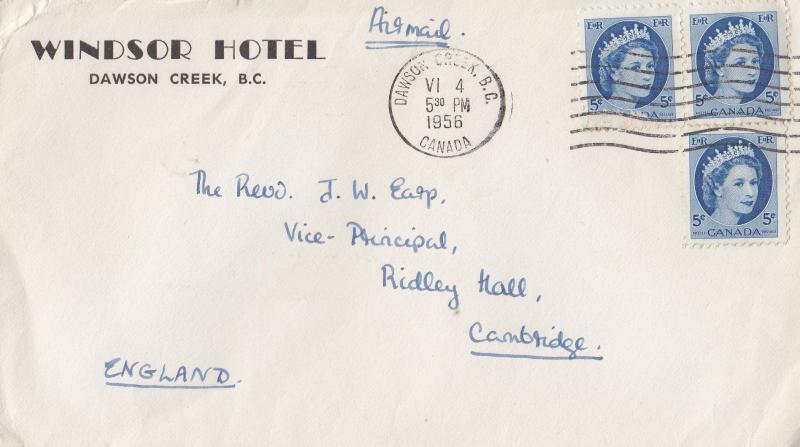 Airmail.
WINDSOR HOTEL
DAWSON CREEK, B.C.
DAWSON CREEK, B.C.
VI 4
5 30 PM
1956
CANADA
EIIR EIIR
5¢ 5¢
CANADA
EIIR EIIR
5¢ 5¢
CANADA
EIIR EIIR
5¢ 5¢
CANADA
The Revd. J. W. Earp,
Vice-Principal,
Ridley Hall,
Cambridge.
ENGLAND.